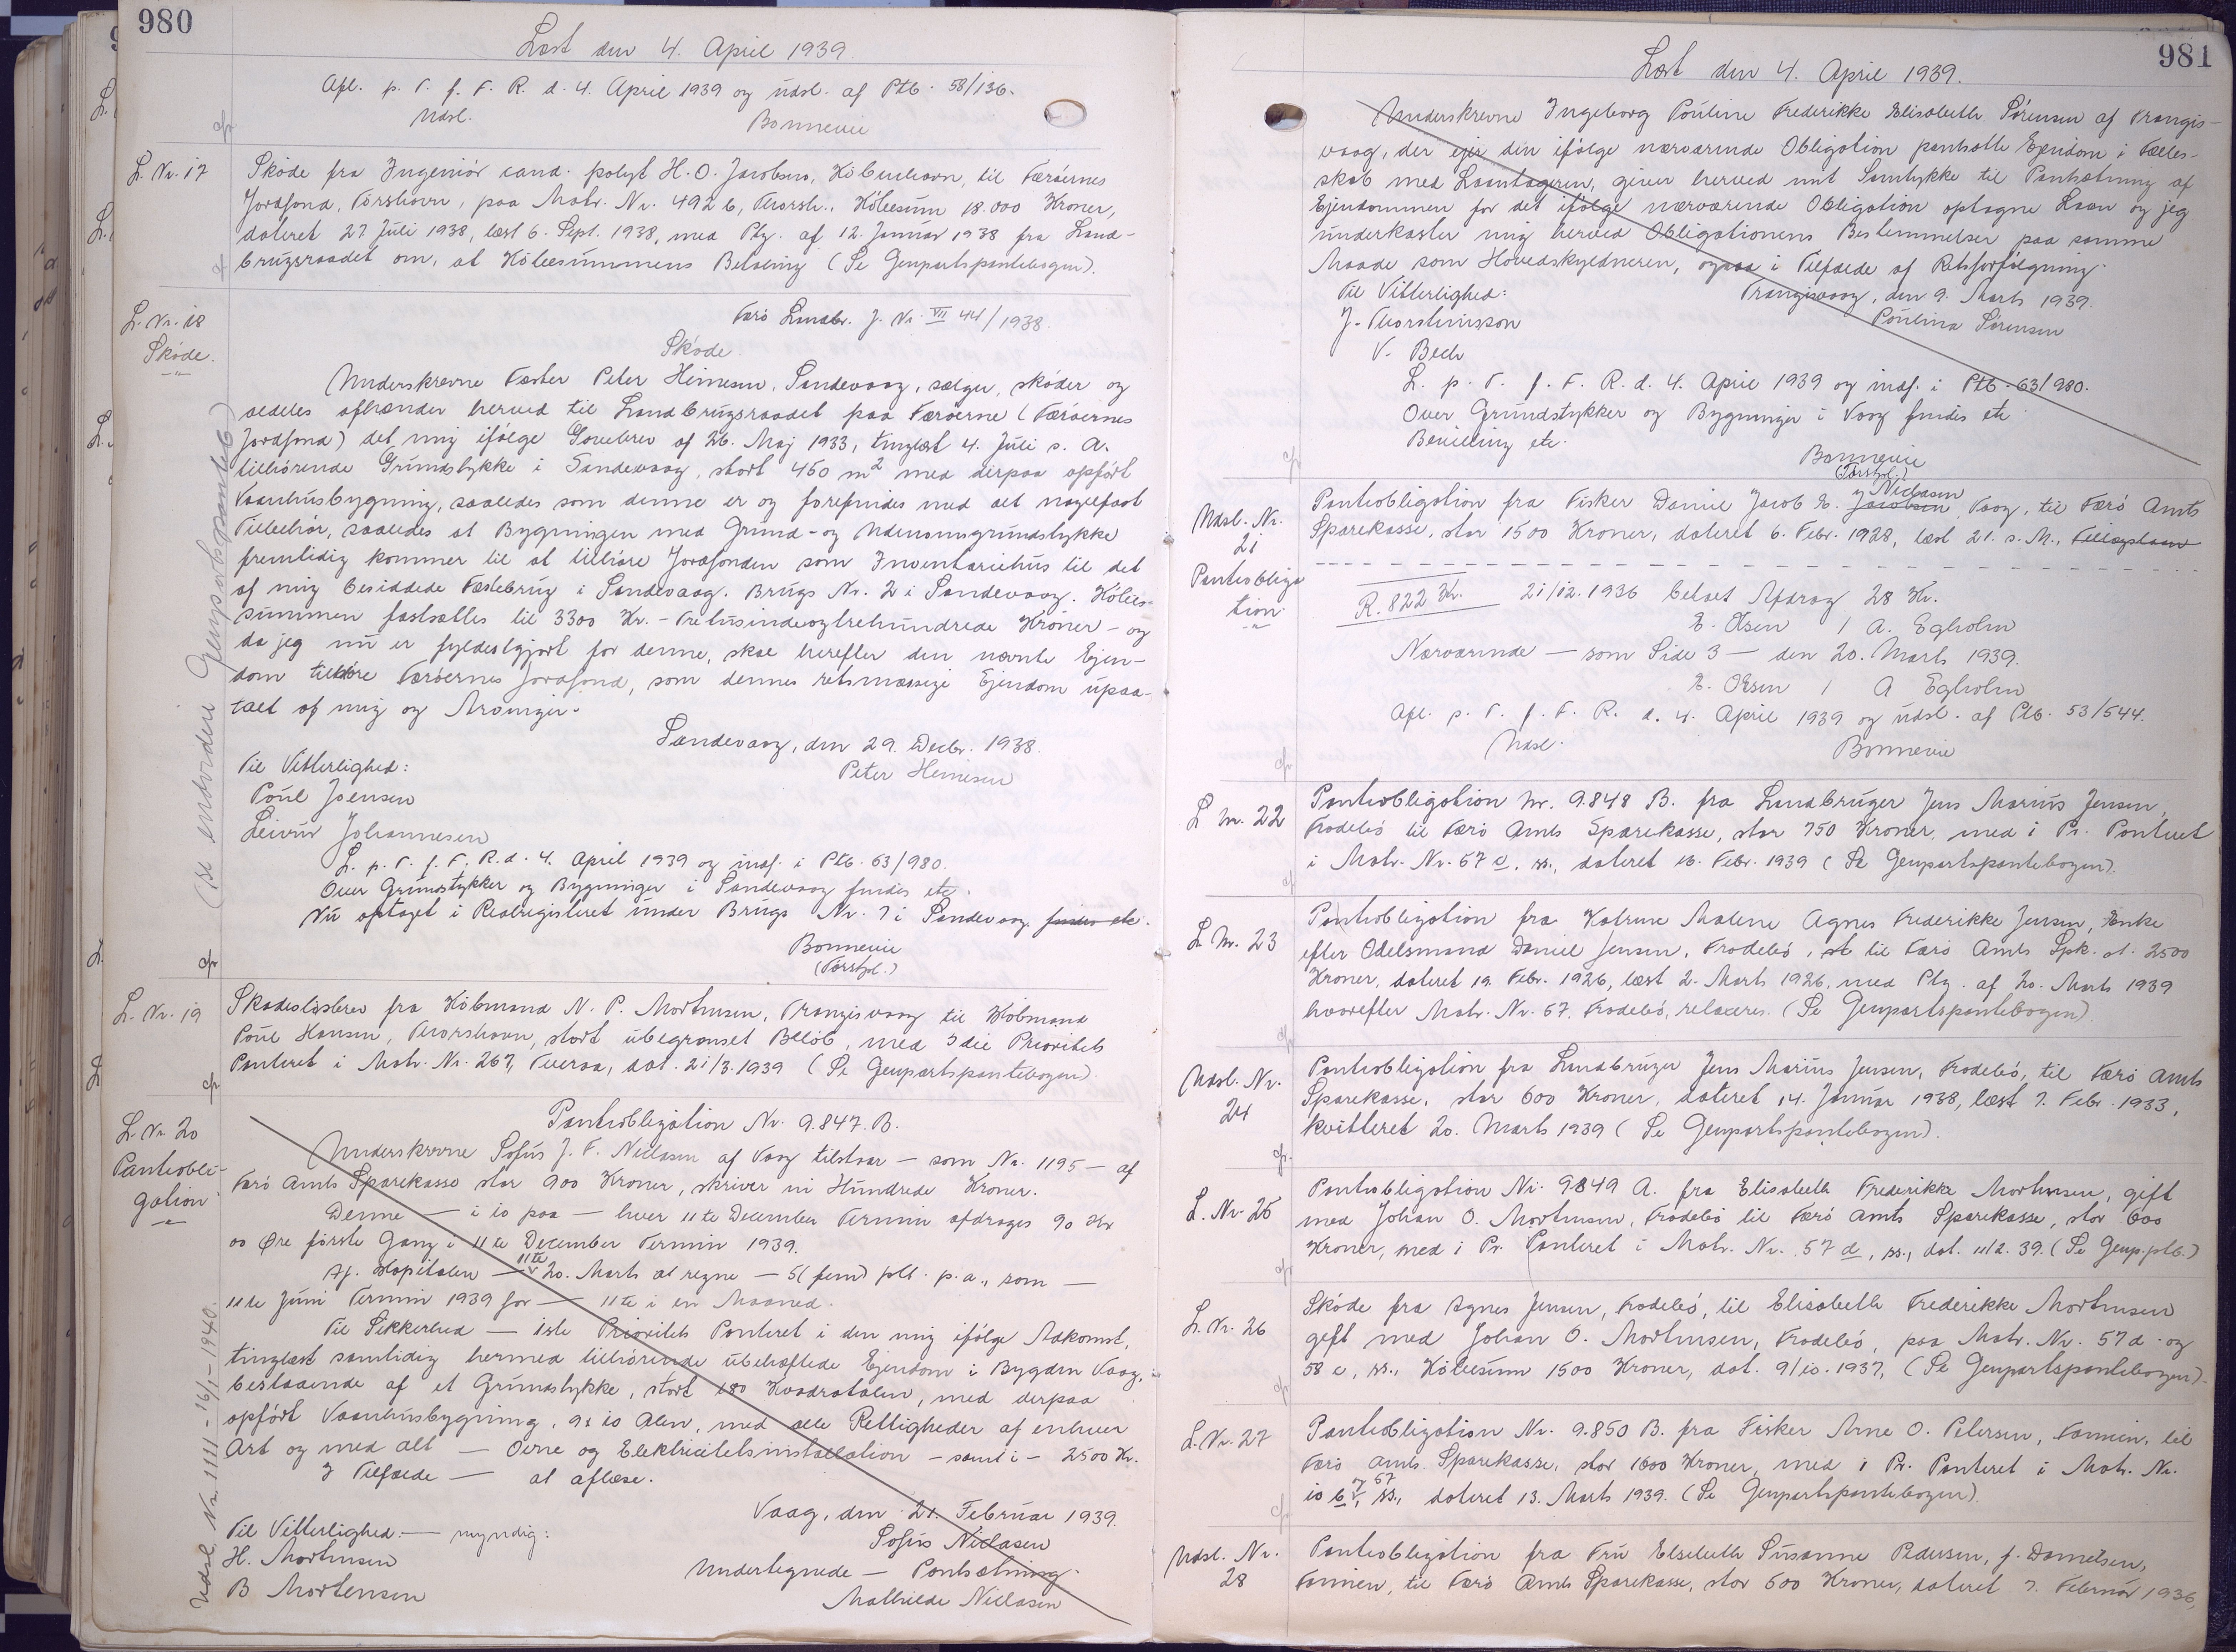 980
Læst den 4. April 1939.
Afl. p. T. f. F. R. d. 4. April 1939 og udsl. af Ptb. 58/136.
Udsl.
Bonnevie
L. Nr. 17
Skøde fra Ingeniør cand. polyt H. O. Jacobsen, København, til Færøernes
Jordfond, Tórshavn, paa Matr. Nr. 492 b, Thorsh., Købesum 18.000 Kroner,
dateret 27 Juli 1938, læst 6. Sept. 1938, med Ptg. af 12. Januar 1938 fra Land-
brugsraadet om, at Købesummens Betaling (Se Genpartspantebogen).
L. Nr. 18
Skøde.
Færø Landbr. J. Nr. VII 44/1938.
Skøde
Underskrevne Fæster Peter Heinesen, Sandevaag, sælger, skøder og
aldeles afhænder herved til Landbrugsraadet paa Færøerne (Færøernes
Jordfond) det mig ifølge Gavebrev af 26. Maj 1933, tinglæst 4. Juli s. A.
tilhørende Grundstykke i Sandevaag, stort 460 m2 med derpaa opført
Vaanhusbygning, saaledes som denne er og forefindes med alt nagelfast
Tilbehør, saaledes at Bygningen med Grund- og Udenomsgrundstykke
fremtidig kommer til at tilhøre Jordfonden som Inventariehus til det
af mig besiddede Fæstebrug i Sandevaag. Brugs Nr. 2 i Sandevaag. Købes-
summen fastsættes til 3300 Kr. - Tretusindeogtrehundrede Kroner - og
da jeg nu er fyldestgjort for denne, skal herefter den nævnte Ejen-
dom tilhøre Færøernes Jordfond, som dennes retsmæssige Ejendom upaa-
talt af mig og Arvinger.
Sandevaag, den 29. Decbr. 1938.
Til Vitterlighed:
Peter Heinesen
Poul Joensen
Leivur Johannesen
L. p. T. f. F. R. d. 4. April 1939 og indf. i Ptb. 63/980.
Over Grundstykker og Bygninger i Sandevaag findes etc.
Nu optaget i Realregisteret under Brugs Nr. 7 i Sandevaag findes etc.
Bonnevie
L. Nr. 19
Skadesløsbrev fra Købmand N. P. Mortensen, Trangisvaag til Købmand
Poul Hansen, Thorshavn, stort ubegrænset Beløb, med 3die Prioritets
Panteret i Matr. Nr. 267, Tveraa, dat. 21/3. 1939 (Se Genpartspantebogen).
L. Nr. 20
Pantobli-
gation
Pantobligation Nr. 9.847. B.
Underskrevne Sofus J. F. Niclasen af Vaag tilstaar - som Nr. 1195 - af
Færø Amts Sparekasse stor 900 Kroner, skriver ni Hundrede Kroner.
Denne - i 10 paa - hver 11te December Termin afdrages 90 Kr
00 Øre første Gang i 11te December Termin 1939.
Af Kapitalen - 11te 20. Marts at regne - 5 (fem) pCt. p. a., som -
11te Juni Termin 1939 for - 11te i en Maaned.
Til Sikkerhed - 1ste Prioritets Panteret i den mig ifølge Adkomst,
tinglæst samtidig hermed tilhørende ubehæftede Ejendom i Bygden Vaag,
bestaaende af et Grundstykke, stort 180 Kvadratalen, med derpaa
opført Vaanhusbygning, 9 x 10 Alen, med alle Rettigheder af enhver
Art og med alt - Ovne og Elektricitetsinstallation - samt i - 2500 Kr.
I Tilfælde - at aflæse.
Vaag, den 21. Februar 1939.
Til Vitterlighed: - myndig:
Sofus Niclasen
H. Mortensen
Undertegnede - Pantsætning.
B Mortensen
Mathilde Niclasen
(se endvidere Genpartspanteb)
Udsl. Nr. 1111 - 16/1 - 1940.
981
Læst den 4. April 1939.
Underskrevne Ingeborg Pouline Frederikke Elisabeth Sørensen af Trangis-
vaag, der ejer den ifølge nærværende Obligation pantsatte Ejendom i Fælles-
skab med Laantageren, giver herved mit Samtykke til Pantsætning af
Ejendommen for det ifølge nærværende Obligation optagne Laan og jeg
underkaster mig herved Obligationens Bestemmelser paa samme
Maade som Hovedskyldneren, ogsaa i Tilfælde af Retsforfølgning.
Til Vitterlighed:
Trangisvaag, den 9. Marts 1939.
J. Thorsteinsson
Poulina Sørensen
V. Bech
L. p. T. f. F. R. d. 4. April 1939 og indf. i Ptb. 63/980.
Over Grundstykker og Bygninger i Vaag findes etc
Bevilling etc.
Bonnevie
Udsl. Nr.
21
Pantobliga
tion
Pantobligation fra Fisker Daniel Jacob E. Jacobsen Niclasen, Vaag, til Færø Amts
Sparekasse, stor 1500 Kroner, dateret 6. Febr. 1928, læst 21. s. M., Tillægslaan
R. 822 Kr. 21/12. 1936 betalt Afdrag 28 Kr.
E. Olsen / A. Egholm
Nærværende - som Side 3 - den 20. Marts 1939.
E. Olsen / A Egholm
Afl. p. T. f. F. R. d. 4. April 1939 og udsl. af Ptb. 53/544.
Udsl.
Bonnevie
L Nr. 22
Pantobligation Nr. 9.848 B. fra Landbruger Jens Marius Jensen,
Frodebø til Færø Amts Sparekasse, stor 750 Kroner, med 1 Pr. Panteret
i Matr. Nr. 67 c, ss., dateret 16. Febr. 1939 (Se Genpartspantebogen).
L Nr. 23
Pantobligation fra Katrine Malene Agnes Frederikke Jensen, Enke
efter Odelsmand Daniel Jensen, Frodebø, st til Færø Amts Spk. st. 2500
Kroner, dateret 19. Febr. 1926, læst 2. Marts 1926, med Ptg. af 20. Marts 1939
hvorefter Matr. Nr. 67, Frodebø, relaxeres. (Se Genpartspantebogen).
Udsl. Nr.
24
Pantobligation fra Landbruger Jens Marius Jensen, Frodebø, til Færø Amts
Sparekasse, stor 600 Kroner, dateret 14. Januar 1938, læst 7. Febr. 1933,
kvitteret 20. Marts 1939 (Se Genpartspantebogen).
L. Nr. 25
Pantobligation Nr. 9849 A. fra Elisabeth Frederikke Mortensen, gift
med Johan O. Mortensen, Frodebø til Færø Amts Sparekasse, stor 600
Kroner, med 1 Pr. Panteret i Matr. Nr. 57 d, ss., dat. 11/2. 39. (Se Genp.ptb.)
L. Nr. 26
Skøde fra Agnes Jensen, Frodebø, til Elisabeth Frederikke Mortensen
gift med Johan O. Mortensen, Frodebø, paa Matr. Nr. 57 d og
58 c, ss., Købesum 1500 Kroner, dat. 9/10. 1937, (Se Genpartspantebogen).
L. Nr. 27
Pantobligation Nr. 9.850 B. fra Fisker Arne O. Petersen, Famien, til
Færø Amts Sparekasse, stor 1600 Kroner, med 1 Pr. Panteret i Matr. Nr.
10 b, og 67 ss., dateret 13. Marts 1939. (Se Genpartspantebogen).
Udsl. Nr.
28
Pantobligation fra Fru Elsebeth Susanne Pedersen, f. Danielsen,
Famien, til Færø Amts Sparekasse, stor 600 Kroner, dateret 7. Februar 1936,